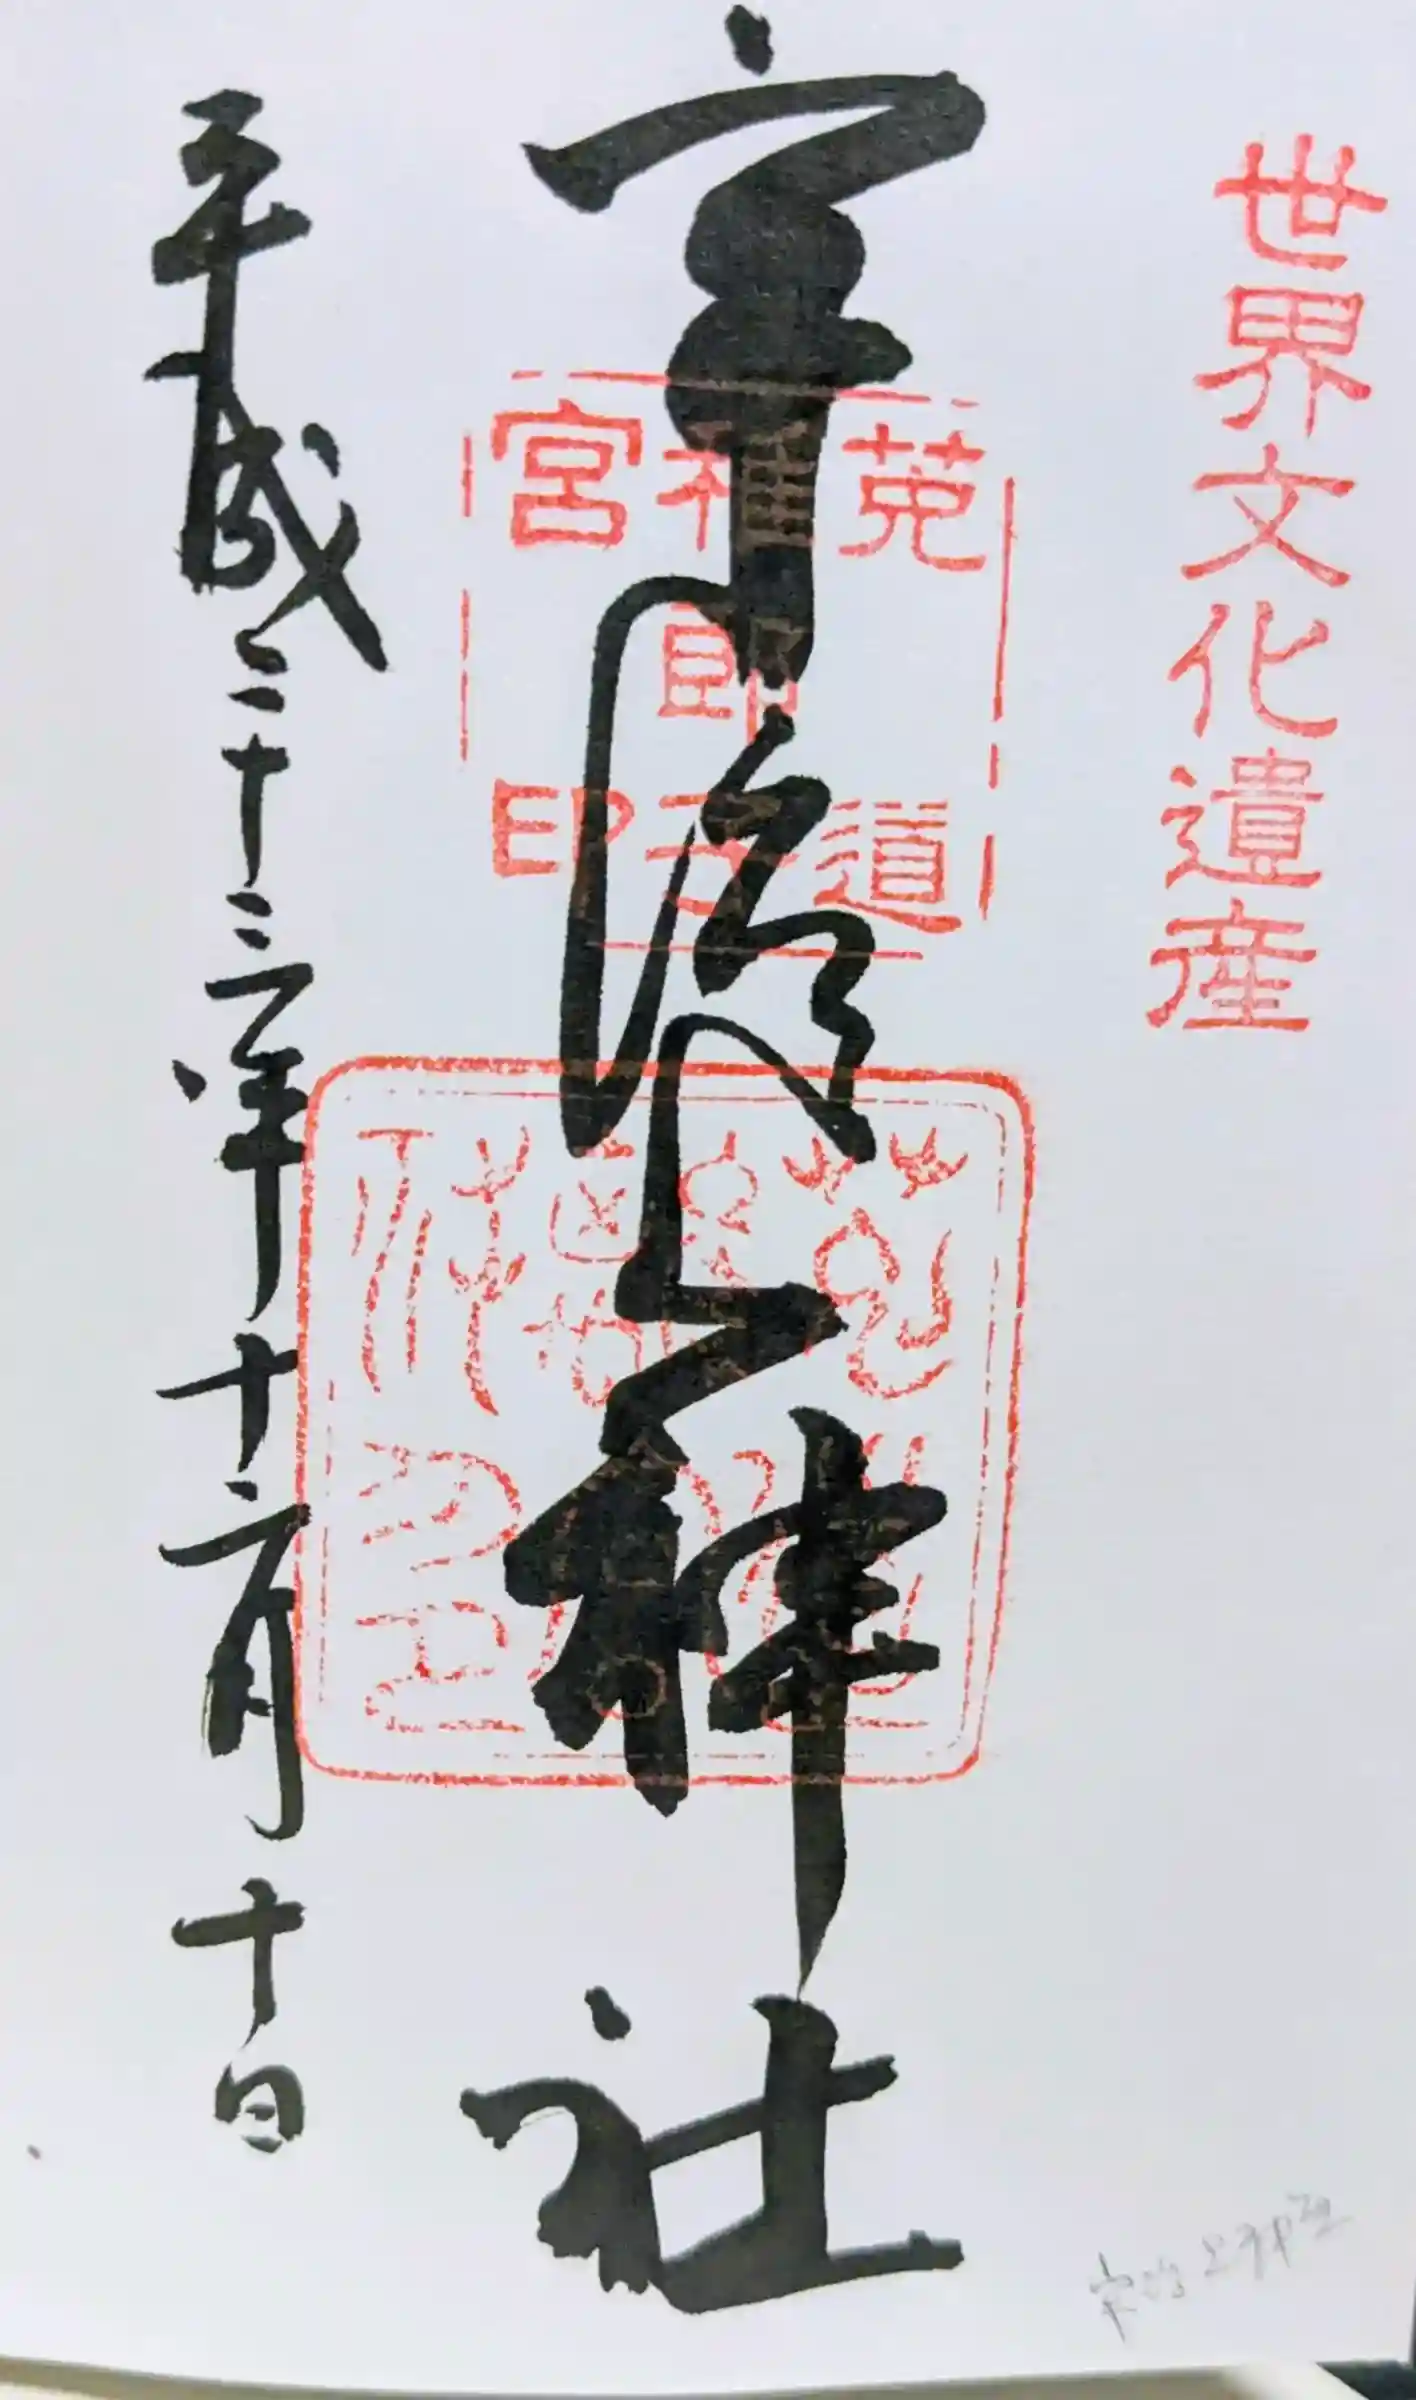 世界文化遺産
宇治上神社
菟道
稚郎子
宮印
平成二十三年十二月十日
宇治上神社